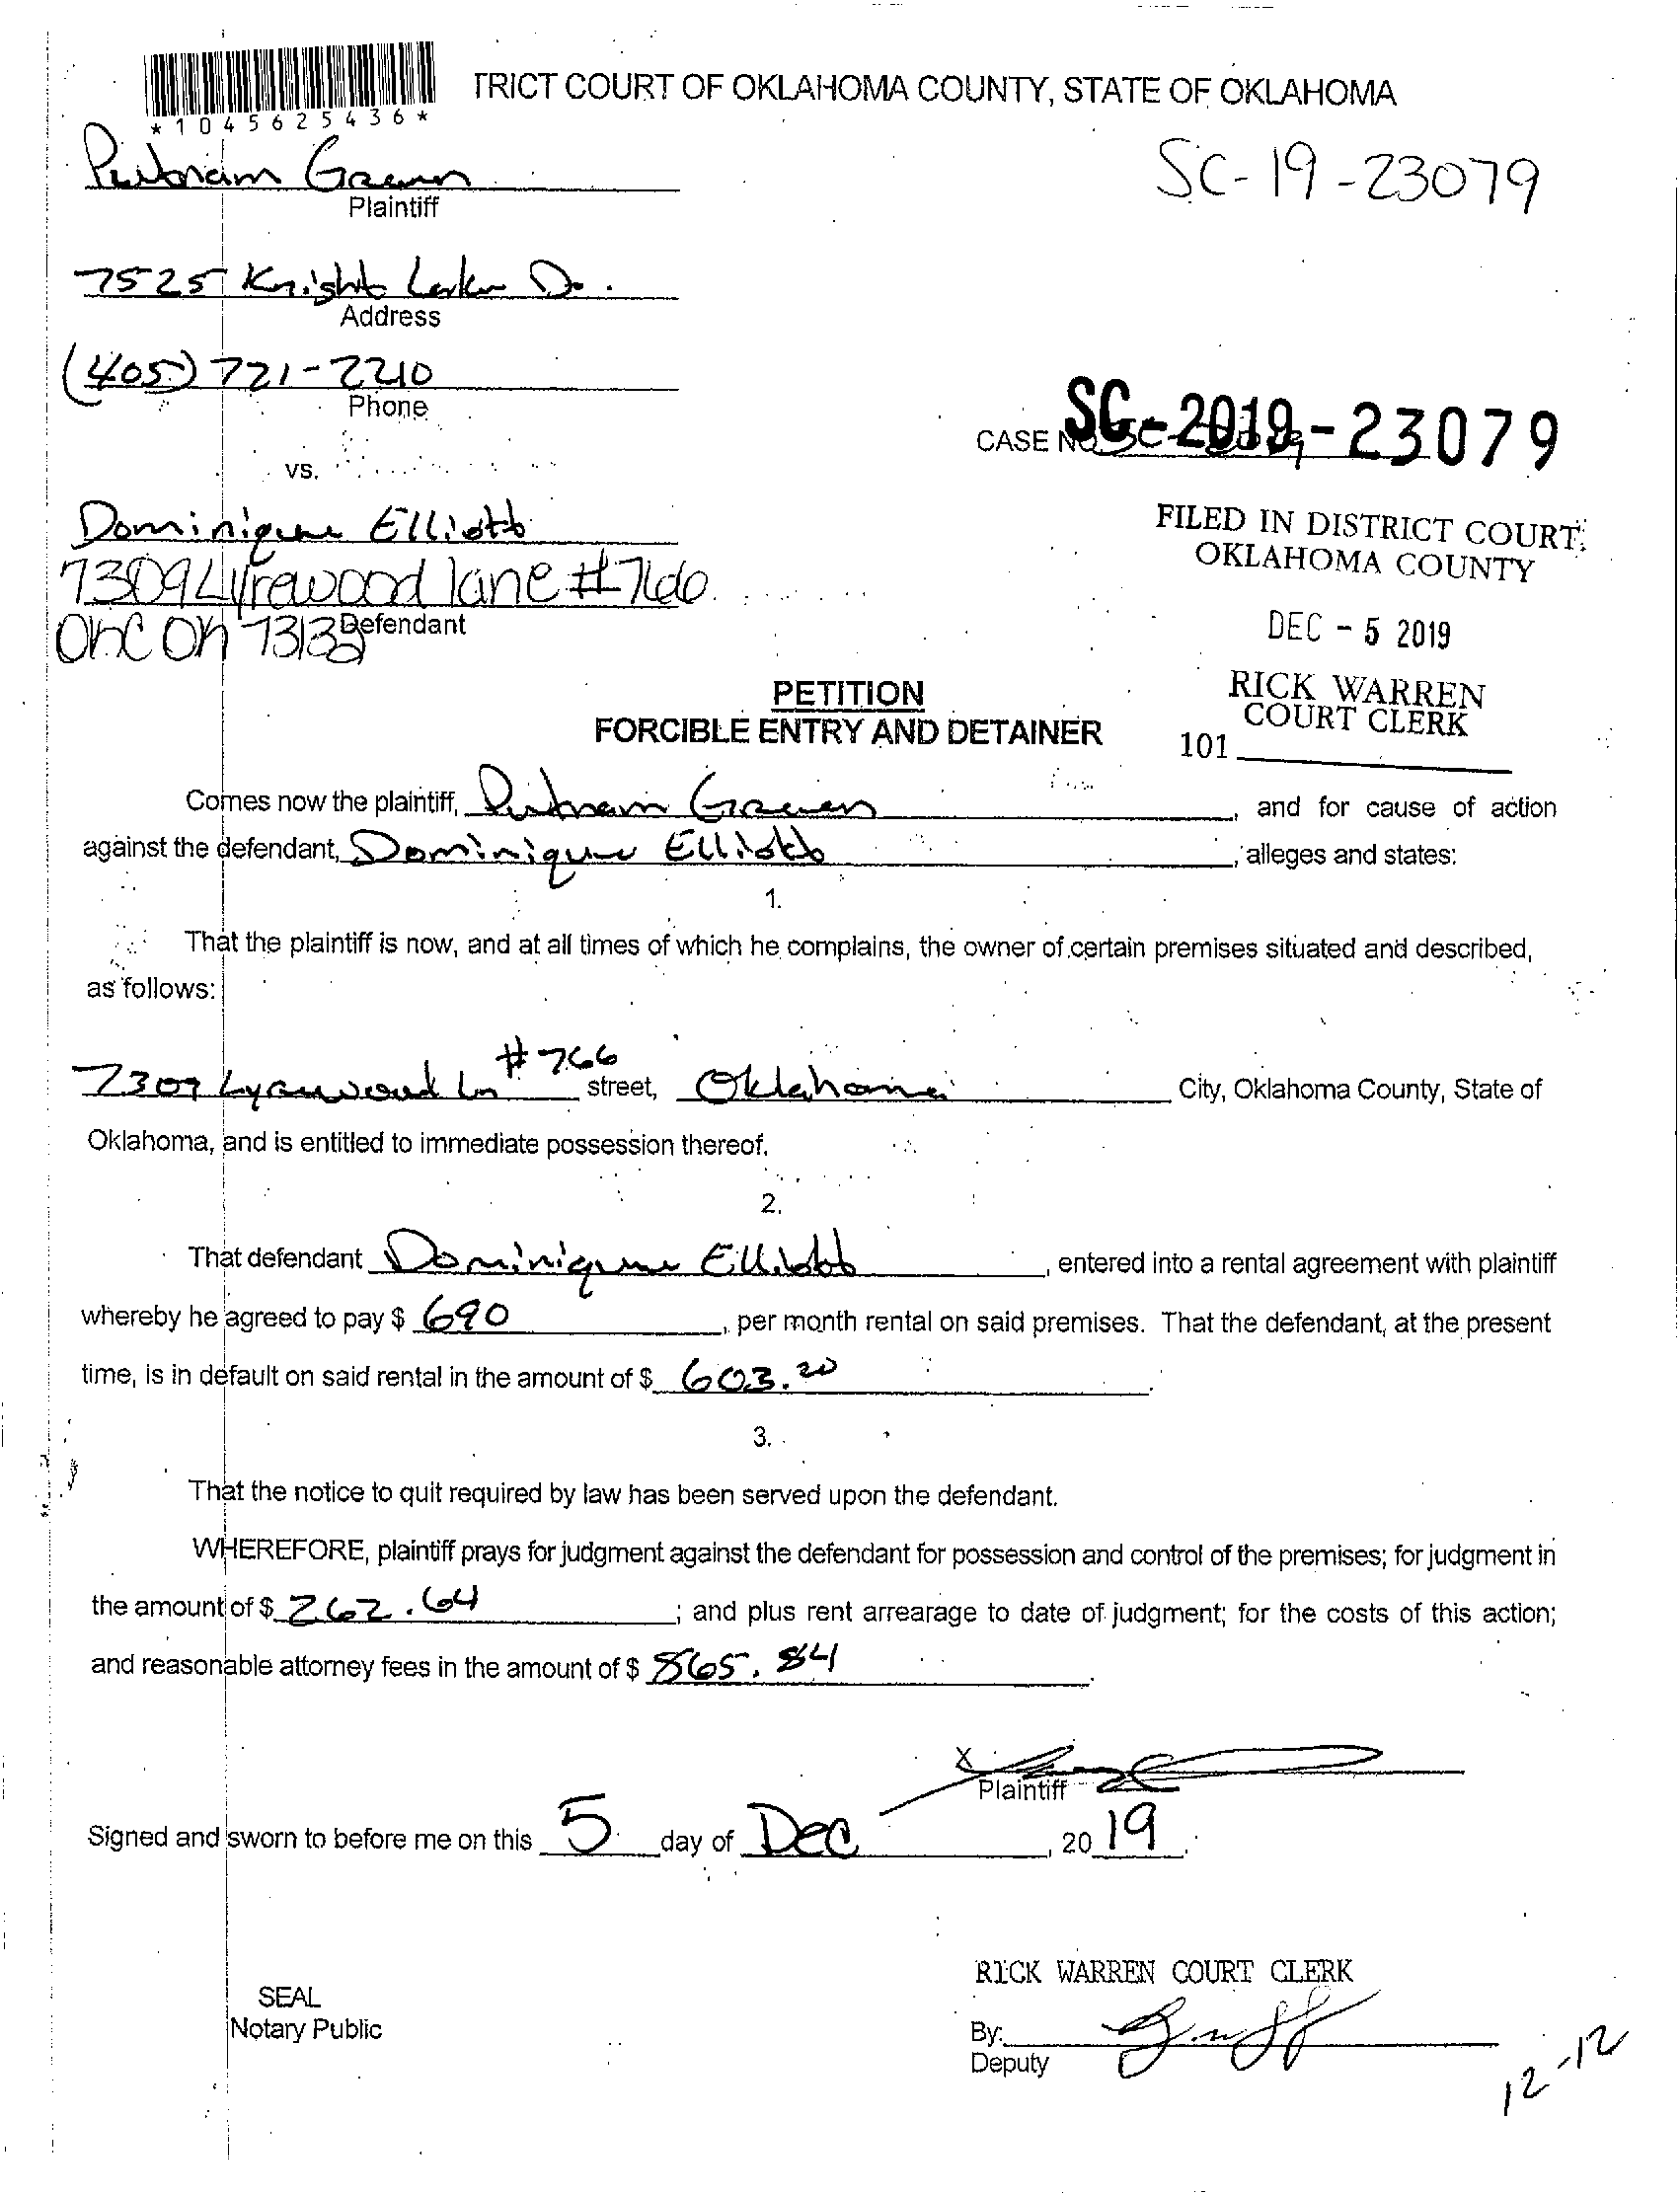 TRICT COURT OF OKLAHOMA COUNTY, STATE OF OKLAHOMA
*1045625436*
Putnam Green
SC-19-23079
Plaintiff
7525 Knight Lake Dr.
Address
(405) 721-2210
Phone
CASE NO. SC-2019-23079
vs.
Dominique Elliott
7309 Lyrewood lane #766
OKC OK 73132
Defendant
FILED IN DISTRICT COURT
OKLAHOMA COUNTY
DEC - 5 2019
RICK WARREN
COURT CLERK
101
PETITION
FORCIBLE ENTRY AND DETAINER
Comes now the plaintiff, Putnam Green, and for cause of action
against the defendant, Dominique Elliott, alleges and states:
1.
That the plaintiff is now, and at all times of which he complains, the owner of certain premises situated and described,
as follows:
7309 Lyrewood Ln #766 street, Oklahoma City, Oklahoma County, State of
Oklahoma, and is entitled to immediate possession thereof.
2.
That defendant Dominique Elliott, entered into a rental agreement with plaintiff
whereby he agreed to pay $ 690, per month rental on said premises. That the defendant, at the present
time, is in default on said rental in the amount of $ 603.20.
3.
That the notice to quit required by law has been served upon the defendant.
WHEREFORE, plaintiff prays for judgment against the defendant for possession and control of the premises; for judgment in
the amount of $ 262.64; and plus rent arrearage to date of judgment; for the costs of this action;
and reasonable attorney fees in the amount of $ 865.84.
X
Plaintiff
Signed and sworn to before me on this 5 day of Dec, 2019.
RICK WARREN COURT CLERK
SEAL
Notary Public
By:
Deputy
12-12